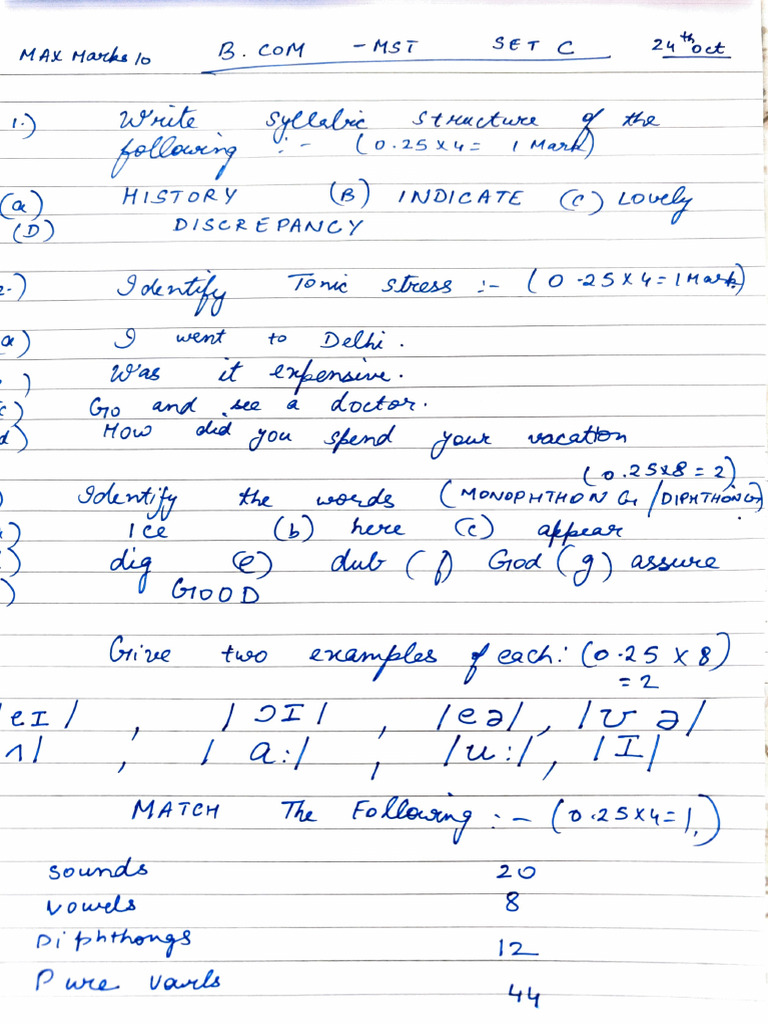 MAX Marks 10 B. COM - MST SET C 24th oct
1.) Write syllabic structure of the
following :- (0.25x4= 1 Mark)
(a) HISTORY (B) INDICATE (C) Lovely
(D) DISCREPANCY
2.) Identify Tonic stress :- (0.25x4=1Mark)
a) I went to Delhi.
) Was it expensive.
c) Go and see a doctor.
d) How did you spend your vacation
(0.25x8=2)
) Identify the words (MONOPHTHONG/DIPHTHONG)
) Ice (b) here (c) appear
) dig (e) dub (f) God (g) assure
) GOOD
Give two examples of each: (0.25 x 8)
= 2
|eI| , |ɔI| , |eə| , |ʊə|
ʌ| , | a:| , |u:| , |I|
MATCH The Following :- (0.25x4=1,)
Sounds 20
Vowels 8
Diphthongs 12
Pure vowls 44